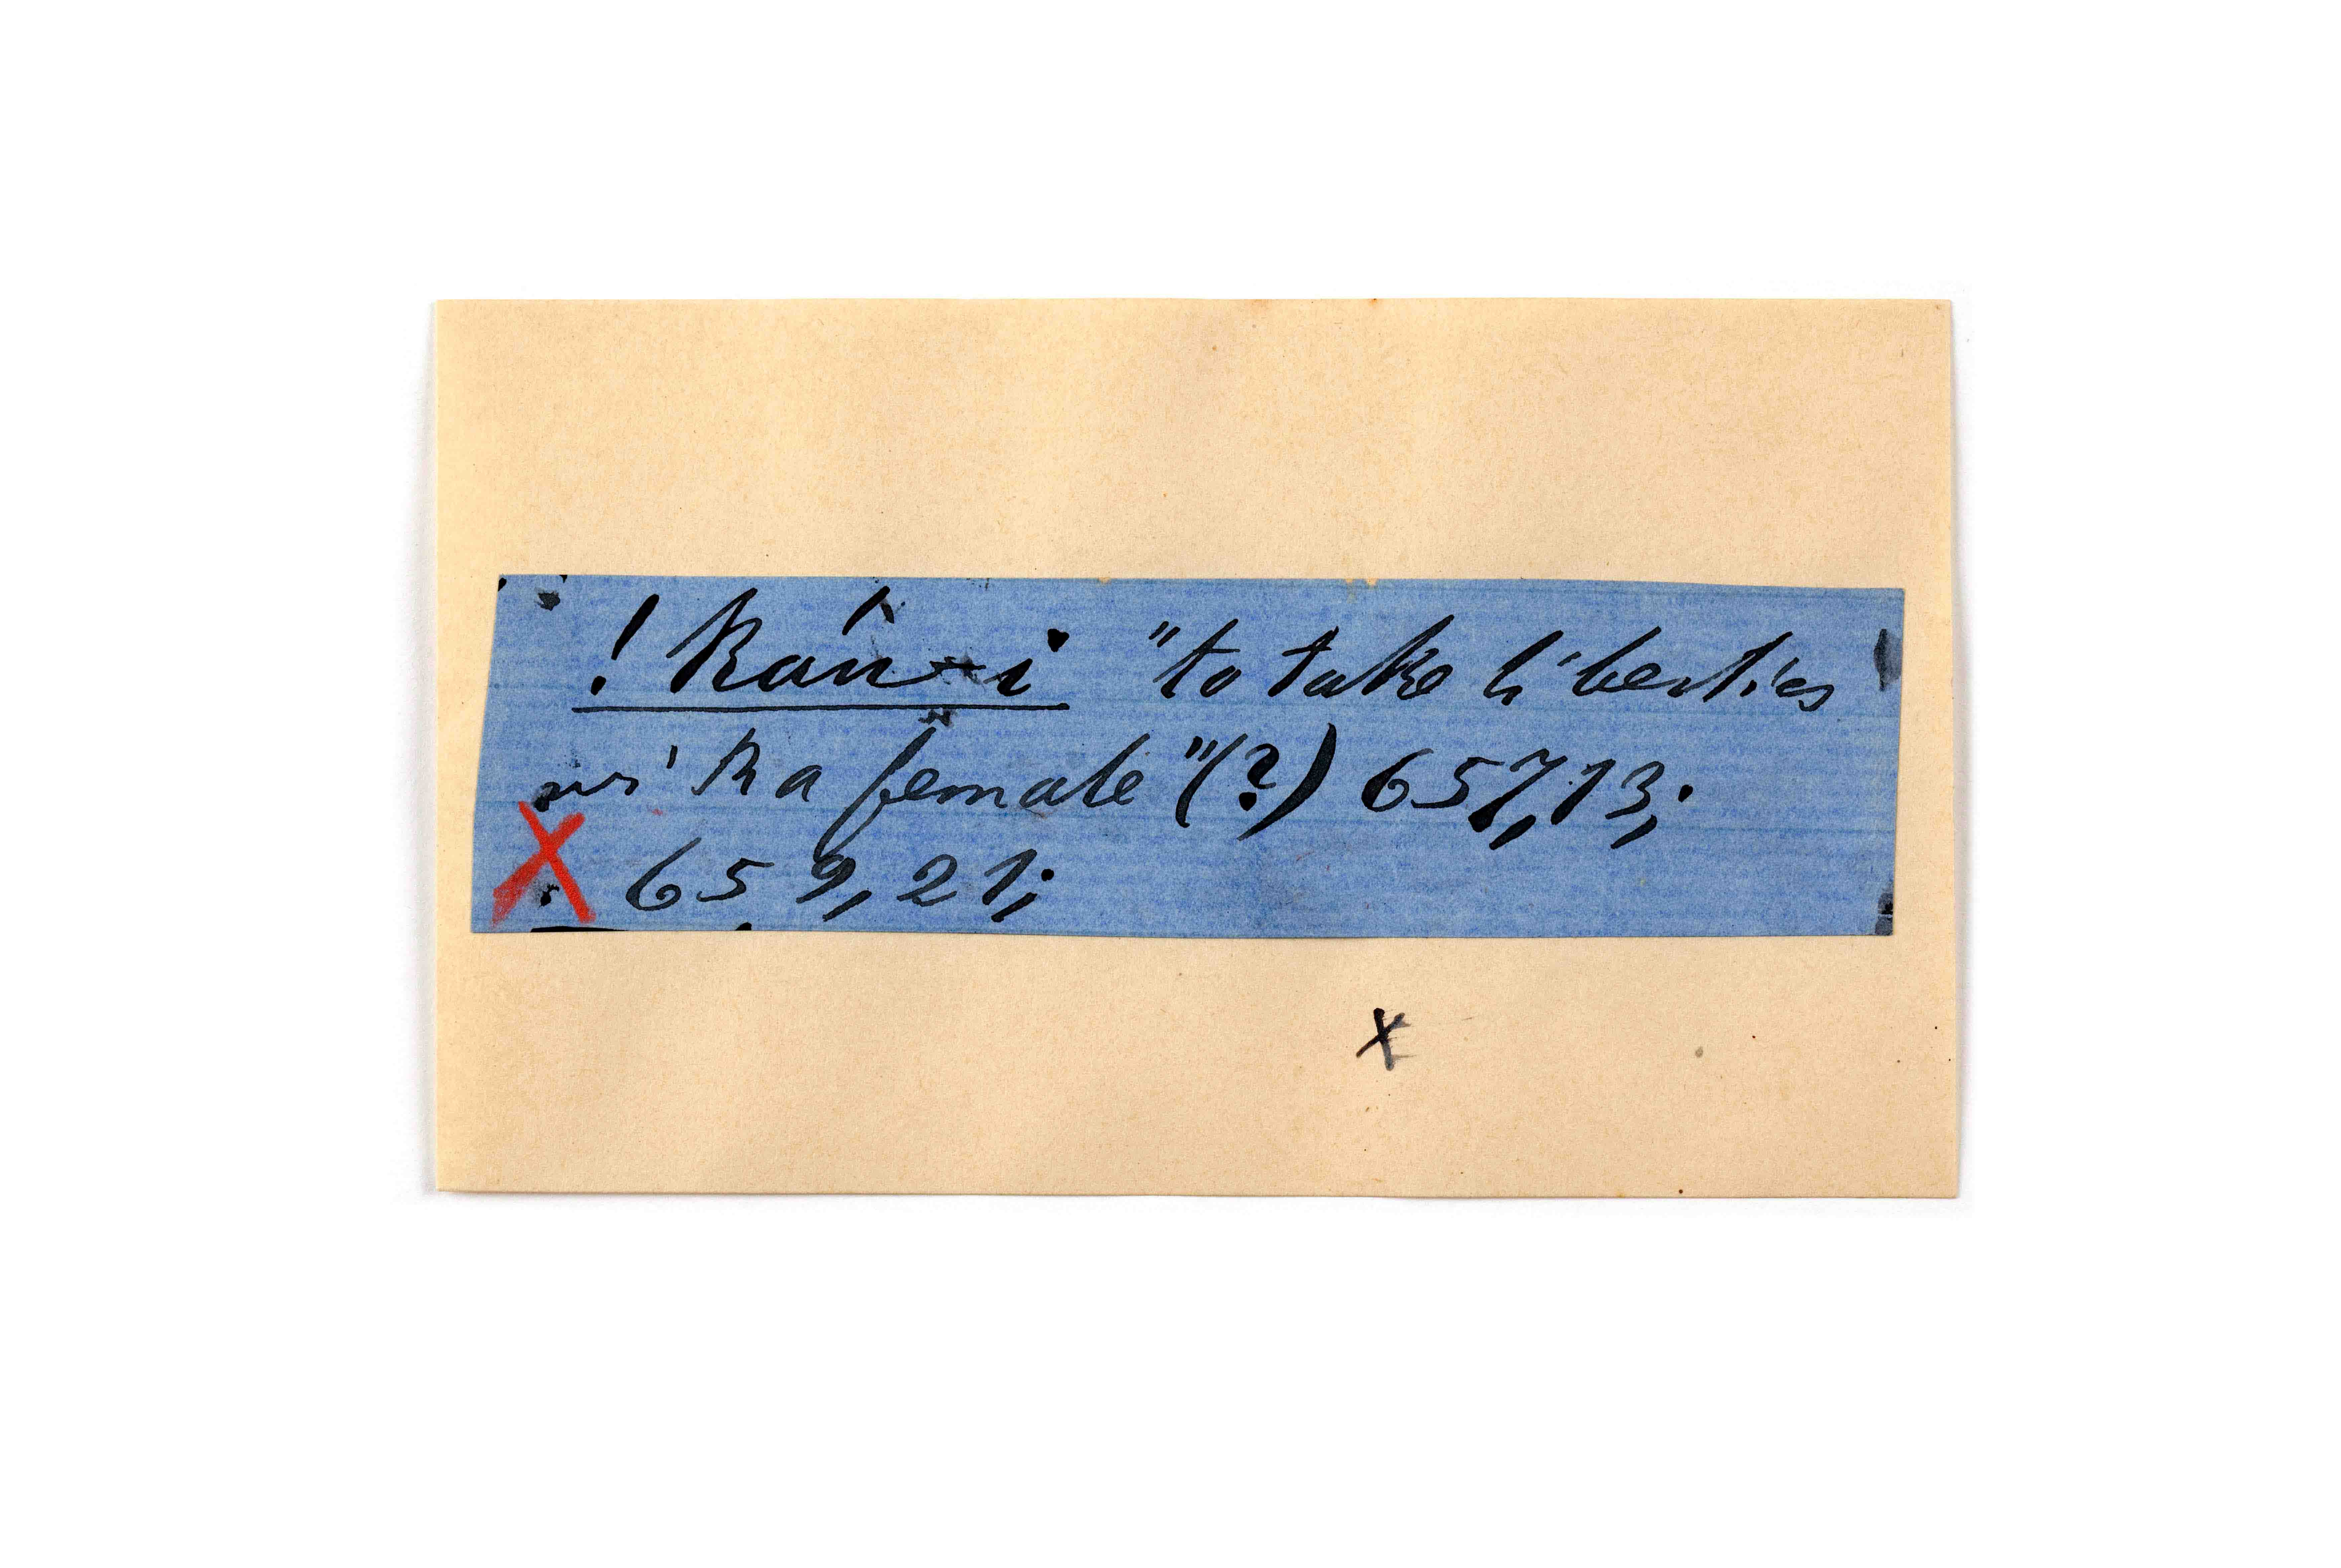 ! kán-i "to take liberties
with a female" (?) 657,13;
X 659, 21;
x